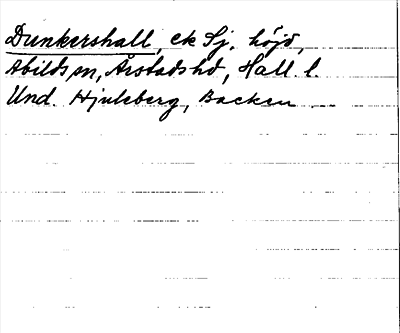 Dunkershall, ek Sj, höjd,
Abilds sn, Årstads hd, Hall. l.
Und. Hjuleberg, Backen